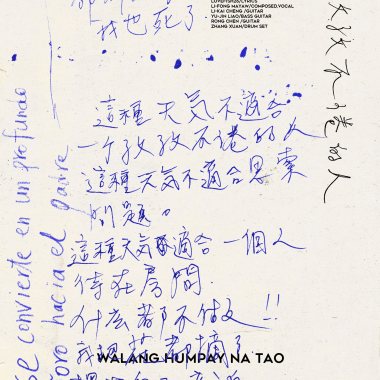 我也死了
LI-FONG MATAW/COMPOSED,VOCAL
LI-KAI CHENG /GUITAR
YU-JIN LIAO/BASS GUITAR
RONG CHEN /GUITAR
ZHANG XUAN/DRUM SET
不倦的人
這種天気不適合
一个孜孜不倦的人
這種天気不適合思索
問題。
這種天気不適合一個人
待在房間.
什么都不做 !!
都摘了
se convierte en un profundo
hacia el padre
WALANG HUMPAY NA TAO